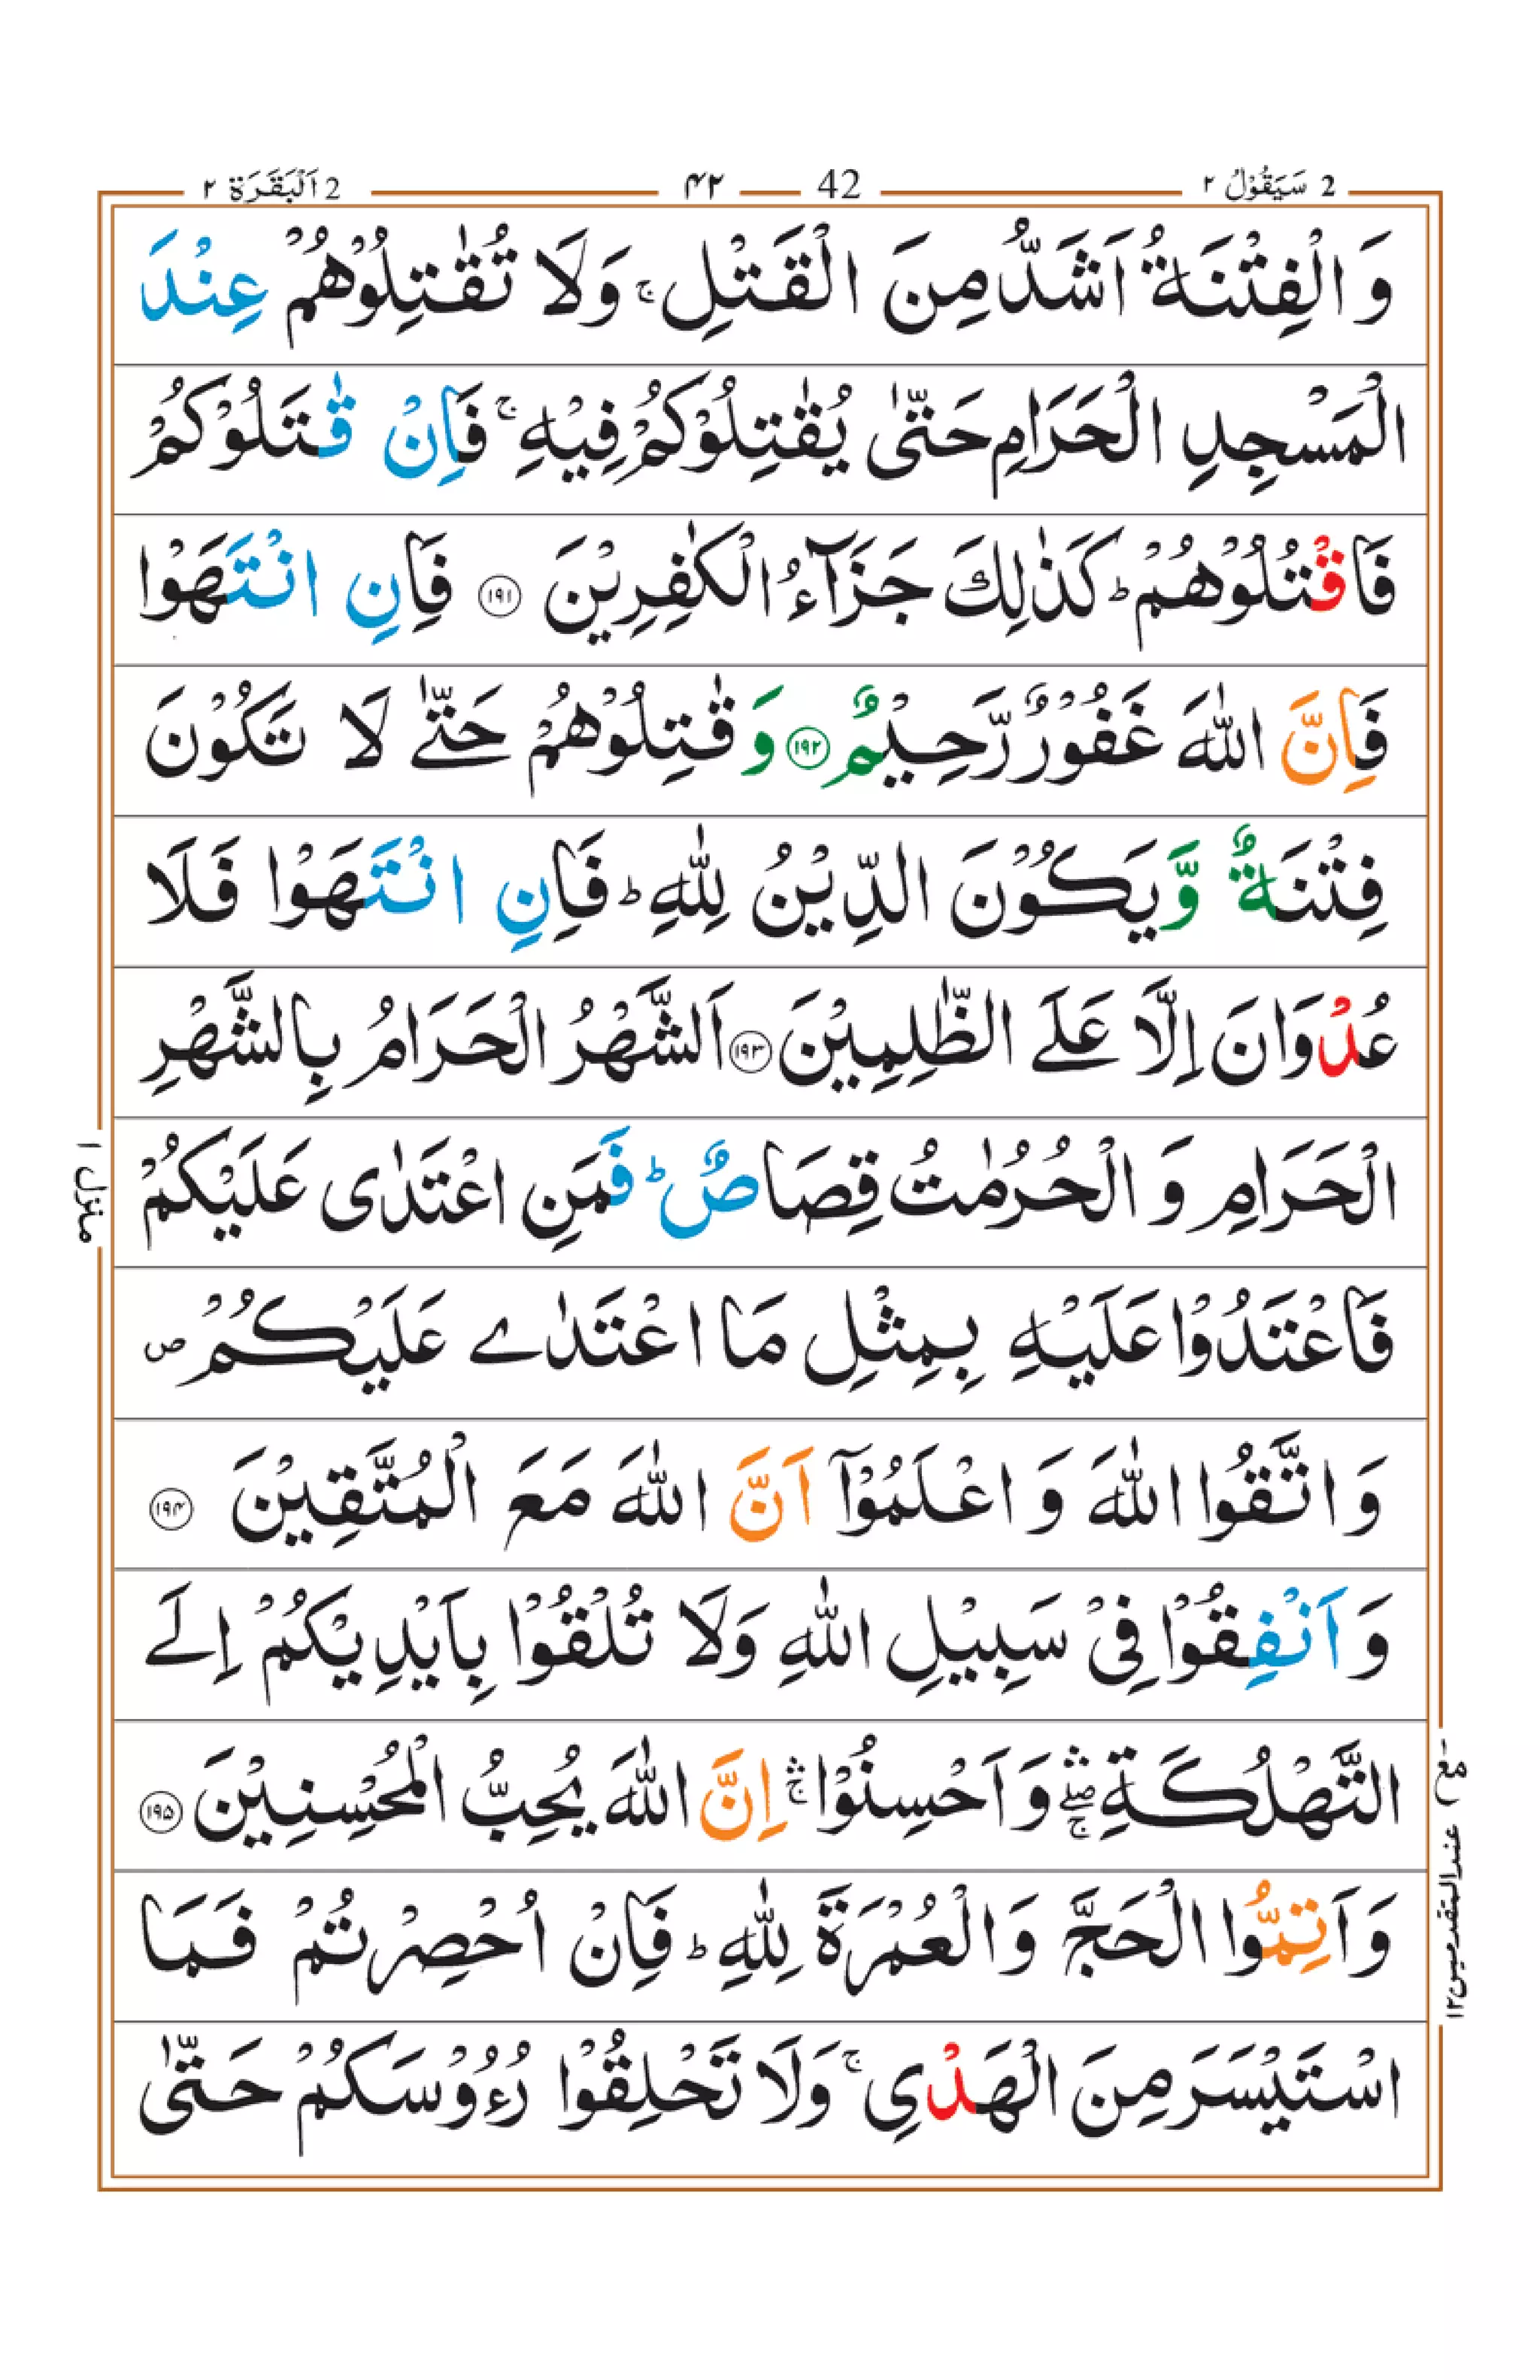 2 سَيَقُوْلُ ٢ 42 ۴۲ 2 اَلْبَقَرَة ٢
وَ الْفِتْنَةُ اَشَدُّ مِنَ الْقَتْلِ ۚ وَلَا تُقٰتِلُوْهُمْ عِنْدَ
الْمَسْجِدِ الْحَرَامِ حَتّٰى يُقٰتِلُوْكُمْ فِيْهِ ۚ فَاِنْ قٰتَلُوْكُمْ
فَاقْتُلُوْهُمْ ؕ كَذٰلِكَ جَزَآءُ الْكٰفِرِيْنَ ۱۹۱ فَاِنِ انْتَهَوْا
فَاِنَّ اللّٰهَ غَفُوْرٌ رَّحِيْمٌ ۱۹۲ وَ قٰتِلُوْهُمْ حَتّٰى لَا تَكُوْنَ
فِتْنَةٌ وَّ يَكُوْنَ الدِّيْنُ لِلّٰهِ ؕ فَاِنِ انْتَهَوْا فَلَا
عُدْوَانَ اِلَّا عَلَى الظّٰلِمِيْنَ ۱۹۳ اَلشَّهْرُ الْحَرَامُ بِالشَّهْرِ
الْحَرَامِ وَ الْحُرُمٰتُ قِصَاصٌ ؕ فَمَنِ اعْتَدٰى عَلَيْكُمْ
فَاعْتَدُوْا عَلَيْهِ بِمِثْلِ مَا اعْتَدٰى عَلَيْكُمْ ص
وَ اتَّقُوا اللّٰهَ وَ اعْلَمُوْۤا اَنَّ اللّٰهَ مَعَ الْمُتَّقِيْنَ ۱۹۴
وَ اَنْفِقُوْا فِىْ سَبِيْلِ اللّٰهِ وَلَا تُلْقُوْا بِاَيْدِيْكُمْ اِلَى
التَّهْلُكَةِ ۛۖۚ وَ اَحْسِنُوْا ۛۚ اِنَّ اللّٰهَ يُحِبُّ الْمُحْسِنِيْنَ ۱۹۵
وَ اَتِمُّوا الْحَجَّ وَ الْعُمْرَةَ لِلّٰهِ ؕ فَاِنْ اُحْصِرْتُمْ فَمَا
اسْتَيْسَرَ مِنَ الْهَدْىِ ۚ وَلَا تَحْلِقُوْا رُءُوْسَكُمْ حَتّٰى
منزل ۱
مع عند المتقدمين ۱۲